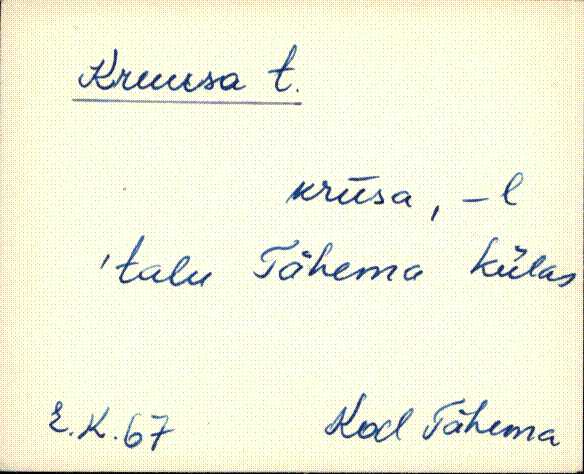 Kruusa t.
krūsa, -l
'talu Tähema külas
E.K. 67 Kod Tähema